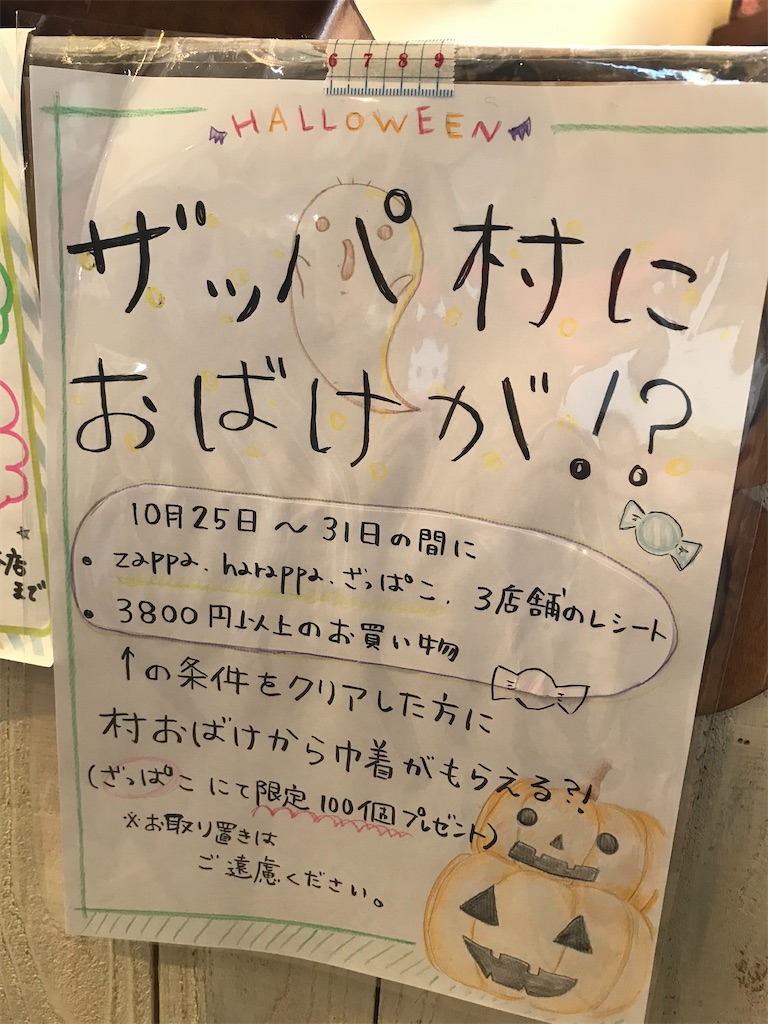 6 7 8 9
HALLOWEEN
ザッパ村に
おばけが!?
10月25日～31日の間に
・zappa.harappa.ざっぱこ.3店舗のレシート
・3800円以上のお買い物
↑の条件をクリアした方に
村おばけから巾着がもらえる?!
(ざっぱこにて限定100個プレゼント)
※お取り置きは
ご遠慮ください。
店
まで